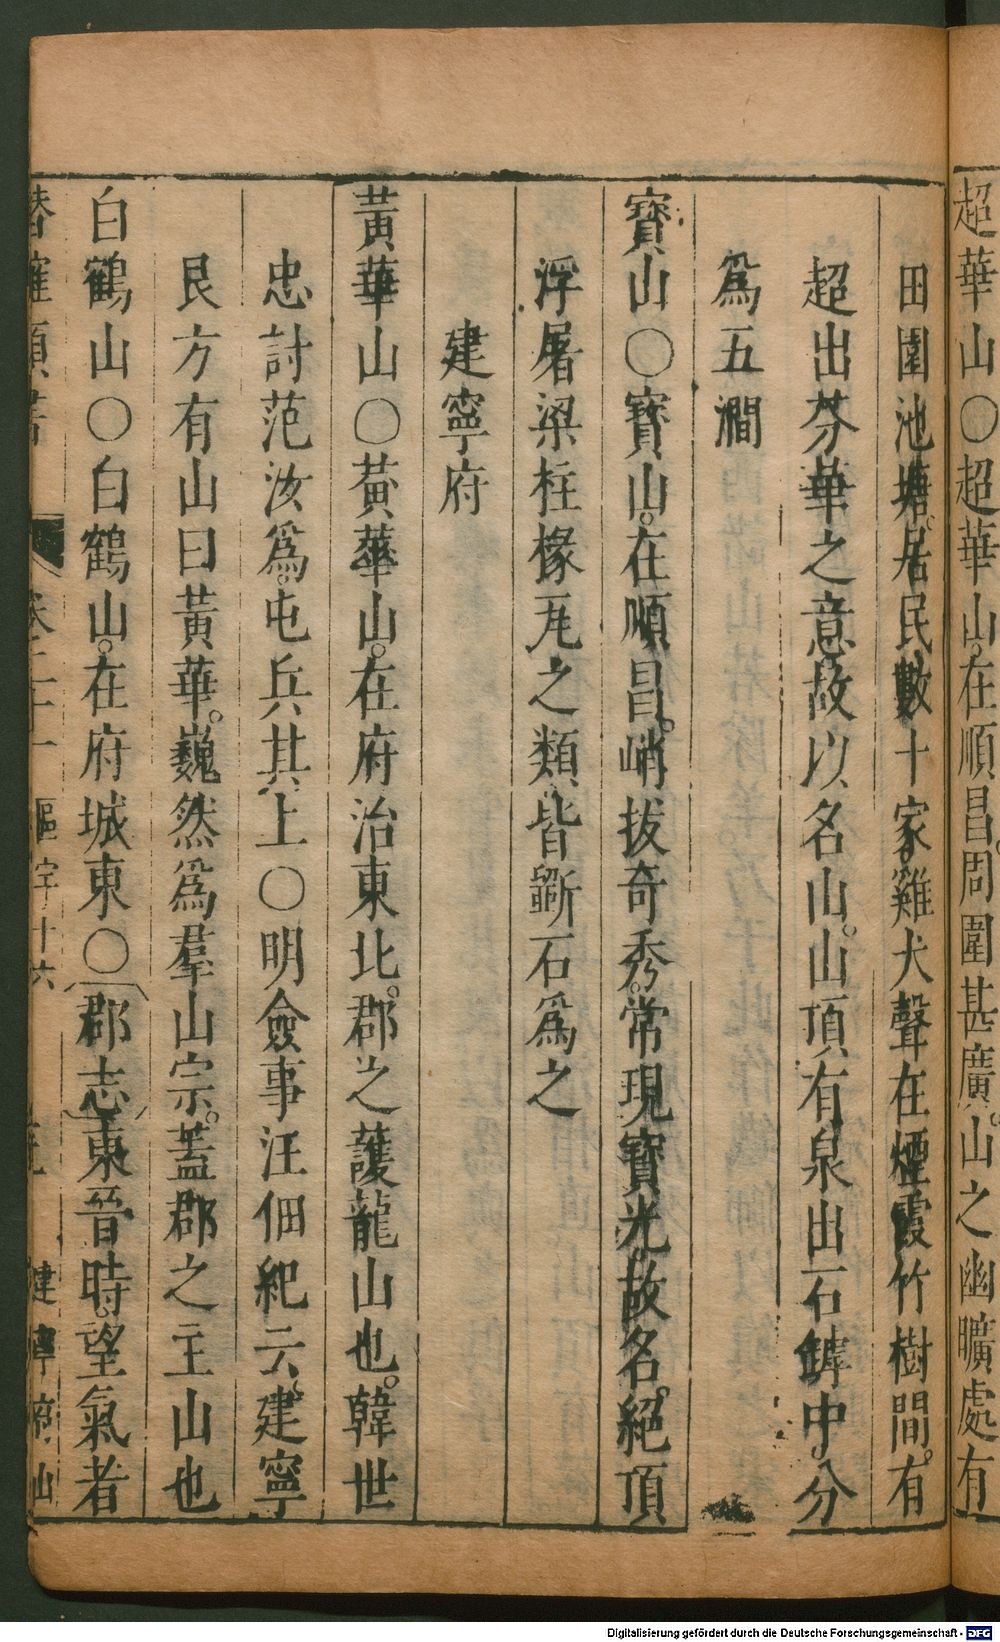 超華山○超華山。在順昌。周圍甚廣。山之幽曠處有
田園池塘。居民數十家。雞犬聲在煙霞竹樹間。有
超出芬華之意。故以名山。山頂有泉出石罅中。分
爲五澗
寶山○寶山。在順昌。峭拔奇秀。常現寶光。故名。絕頂
浮屠梁柱椽瓦之類。皆斲石爲之
建寧府
黃華山○黃華山。在府治東北。郡之護龍山也。韓世
忠討范汝爲。屯兵其上○明僉事汪佃紀云。建寧
艮方有山曰黃華。巍然爲羣山宗。蓋郡之主山也
白鶴山○白鶴山。在府城東○郡志東晉時。望氣者
潛確類書 卷二十一 區宇十六 建寧府山
Digitalisierung gefördert durch die Deutsche Forschungsgemeinschaft - DFG